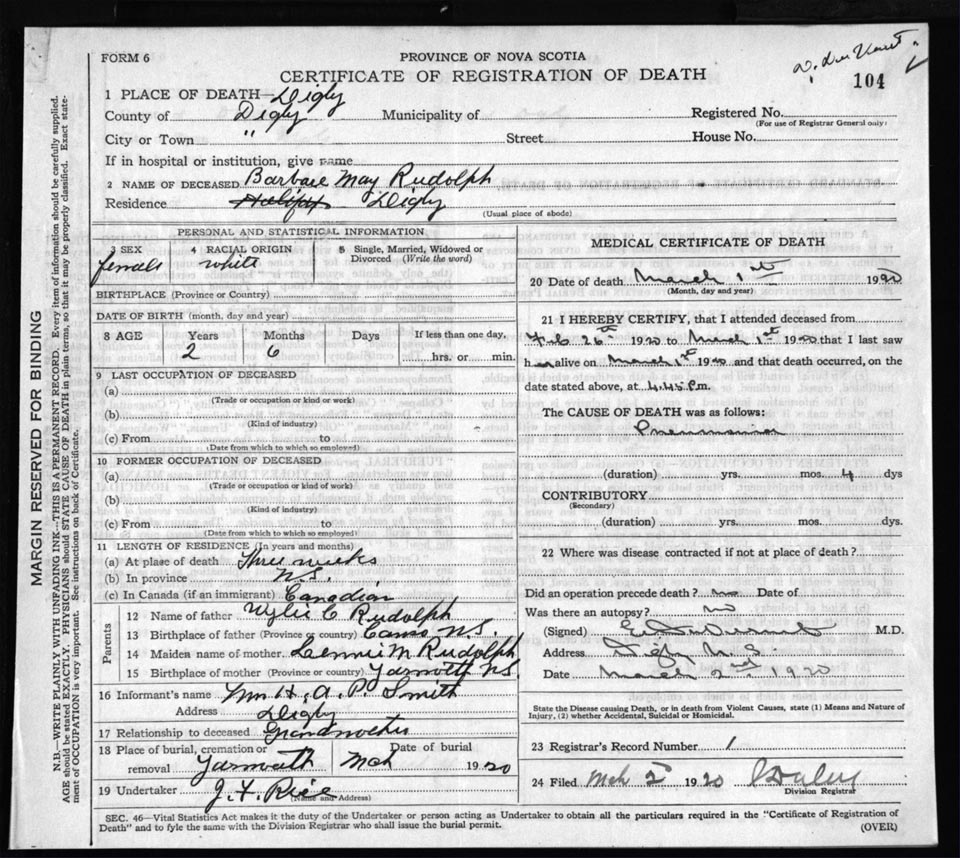 FORM 6
PROVINCE OF NOVA SCOTIA
CERTIFICATE OF REGISTRATION OF DEATH
104
1 PLACE OF DEATH—Digby
County of Digby Municipality of
Registered No.
(For use of Registrar General only)
City or Town " Street House No.
If in hospital or institution, give name
2 NAME OF DECEASED Barbara May Rudolph
Residence Halifax Digby
(Usual place of abode)
PERSONAL AND STATISTICAL INFORMATION
3 SEX female
4 RACIAL ORIGIN white
5 Single, Married, Widowed or Divorced (Write the word)
BIRTHPLACE (Province or Country)
DATE OF BIRTH (month, day and year)
8 AGE Years Months Days If less than one day,
2 6 hrs. or min.
9 LAST OCCUPATION OF DECEASED
(a)
(Trade or occupation or kind of work)
(b)
(Kind of industry)
(c) From to
(Date from which to which so employed)
10 FORMER OCCUPATION OF DECEASED
(a)
(Trade or occupation or kind of work)
(b)
(Kind of industry)
(c) From to
(Date from which to which so employed)
11 LENGTH OF RESIDENCE (In years and months)
(a) At place of death Three weeks
(b) In province N.S.
(c) In Canada (if an immigrant) Canadian
Parents
12 Name of father Wylie C Rudolph
13 Birthplace of father (Province or country) Canso N.S.
14 Maiden name of mother Lennie M Rudolph
15 Birthplace of mother (Province or country) Yarmouth N.S.
16 Informant's name Mrs H. A. P. Smith
Address Digby
17 Relationship to deceased Grandmother
18 Place of burial, cremation or removal Yarmouth
Date of burial Mch 1920
19 Undertaker J. F. Rice
(Name and Address)
MEDICAL CERTIFICATE OF DEATH
20 Date of death March 1st 1920
(Month, day and year)
21 I HEREBY CERTIFY, that I attended deceased from
Feb 26th 1920 to March 1st 1920 that I last saw
h er alive on March 1st 1920 and that death occurred, on the
date stated above, at 4.45 P.m.
The CAUSE OF DEATH was as follows:
Pneumonia
(duration) yrs. mos. 4 dys
CONTRIBUTORY
(Secondary)
(duration) yrs. mos. dys.
22 Where was disease contracted if not at place of death?
Did an operation precede death? no Date of
Was there an autopsy? no
(Signed) M.D.
Address Digby N.S.
Date March 2nd 1920
State the Disease causing Death, or in death from Violent Causes, state (1) Means and Nature of
Injury, (2) whether Accidental, Suicidal or Homicidal.
23 Registrar's Record Number 1
24 Filed Mch 2 1920
Division Registrar
SEC. 46—Vital Statistics Act makes it the duty of the Undertaker or person acting as Undertaker to obtain all the particulars required in the "Certificate of Registration of
Death" and to fyle the same with the Division Registrar who shall issue the burial permit.
(OVER)
MARGIN RESERVED FOR BINDING
N.B.—WRITE PLAINLY WITH UNFADING INK—THIS IS A PERMANENT RECORD. Every item of information should be carefully supplied.
AGE should be stated EXACTLY. PHYSICIANS should STATE CAUSE OF DEATH in plain terms, so that it may be properly classified. Exact state-
ment of OCCUPATION is very important. See instructions on back of Certificate.